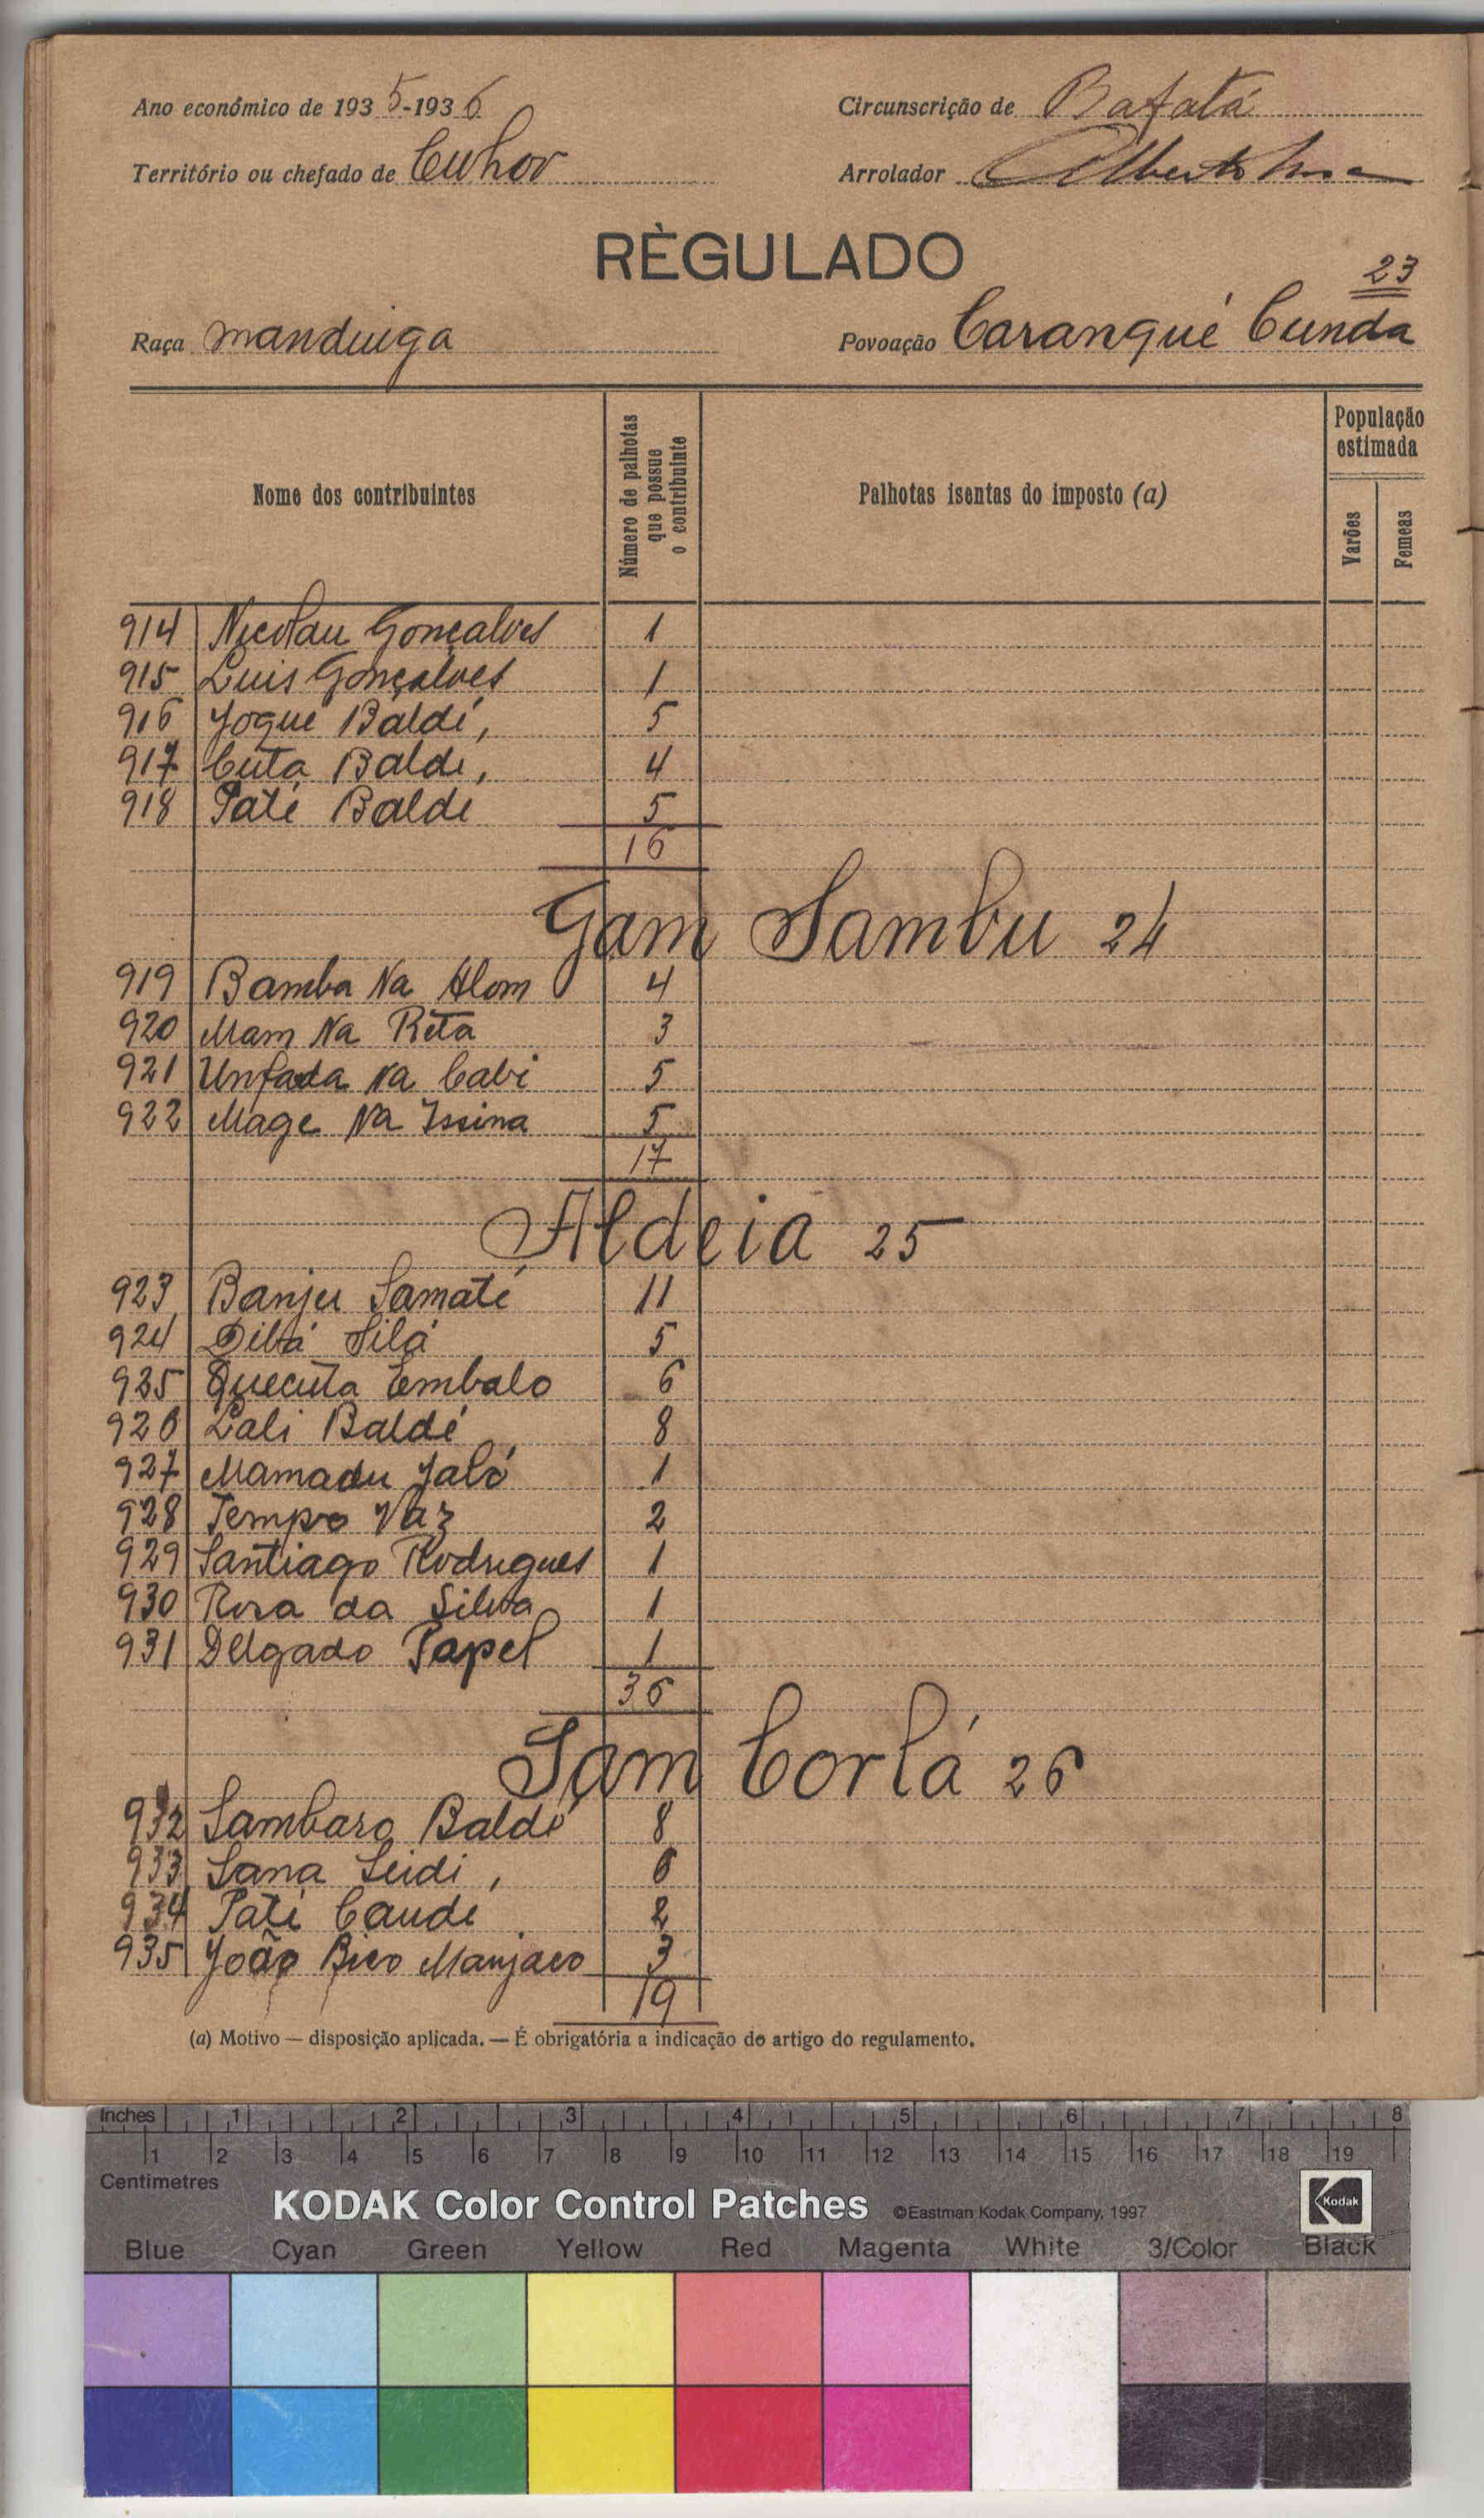 Ano económico de 1935-1936
Circunscrição de Bafatá
Território ou chefado de Cuhor
Arrolador Alberto
RÈGULADO
23
Raça Mandinga
Povoação Caranqué Cunda
Nome dos contribuintes
Número de palhotas que possue o contribuinte
Palhotas isentas do imposto (a)
População estimada
Varões
Femeas
914 Nicolau Gonçalves 1
915 Luis Gonçalves 1
916 Joque Baldé, 5
917 Cuta Baldé, 4
918 Paté Baldé 5
16
Gam Sambu 24
919 Bamba Na Alom 4
920 Mam Na Reta 3
921 Unfada Na Cabi 5
922 Mage Na Issina 5
17
Aldeia 25
923 Banju Samaté 11
924 Dibá Silá 5
925 Quecuta Embalo 6
926 Lali Baldé 8
927 Mamadu Jaló 1
928 Tempo Vaz 2
929 Santiago Rodrigues 1
930 Rosa da Silva 1
931 Delgado Papel 1
36
Sam Corlá 26
932 Sambaro Baldé 8
933 Sana Seidi, 6
934 Paté Candé 2
935 João Bico Manjaco 3
19
(a) Motivo — disposição aplicada. — É obrigatória a indicação do artigo do regulamento.
Inches 1 2 3 4 5 6 7 8
1 2 3 4 5 6 7 8 9 10 11 12 13 14 15 16 17 18 19
Centimetres
KODAK Color Control Patches ©Eastman Kodak Company, 1997 Kodak
Blue Cyan Green Yellow Red Magenta White 3/Color Black